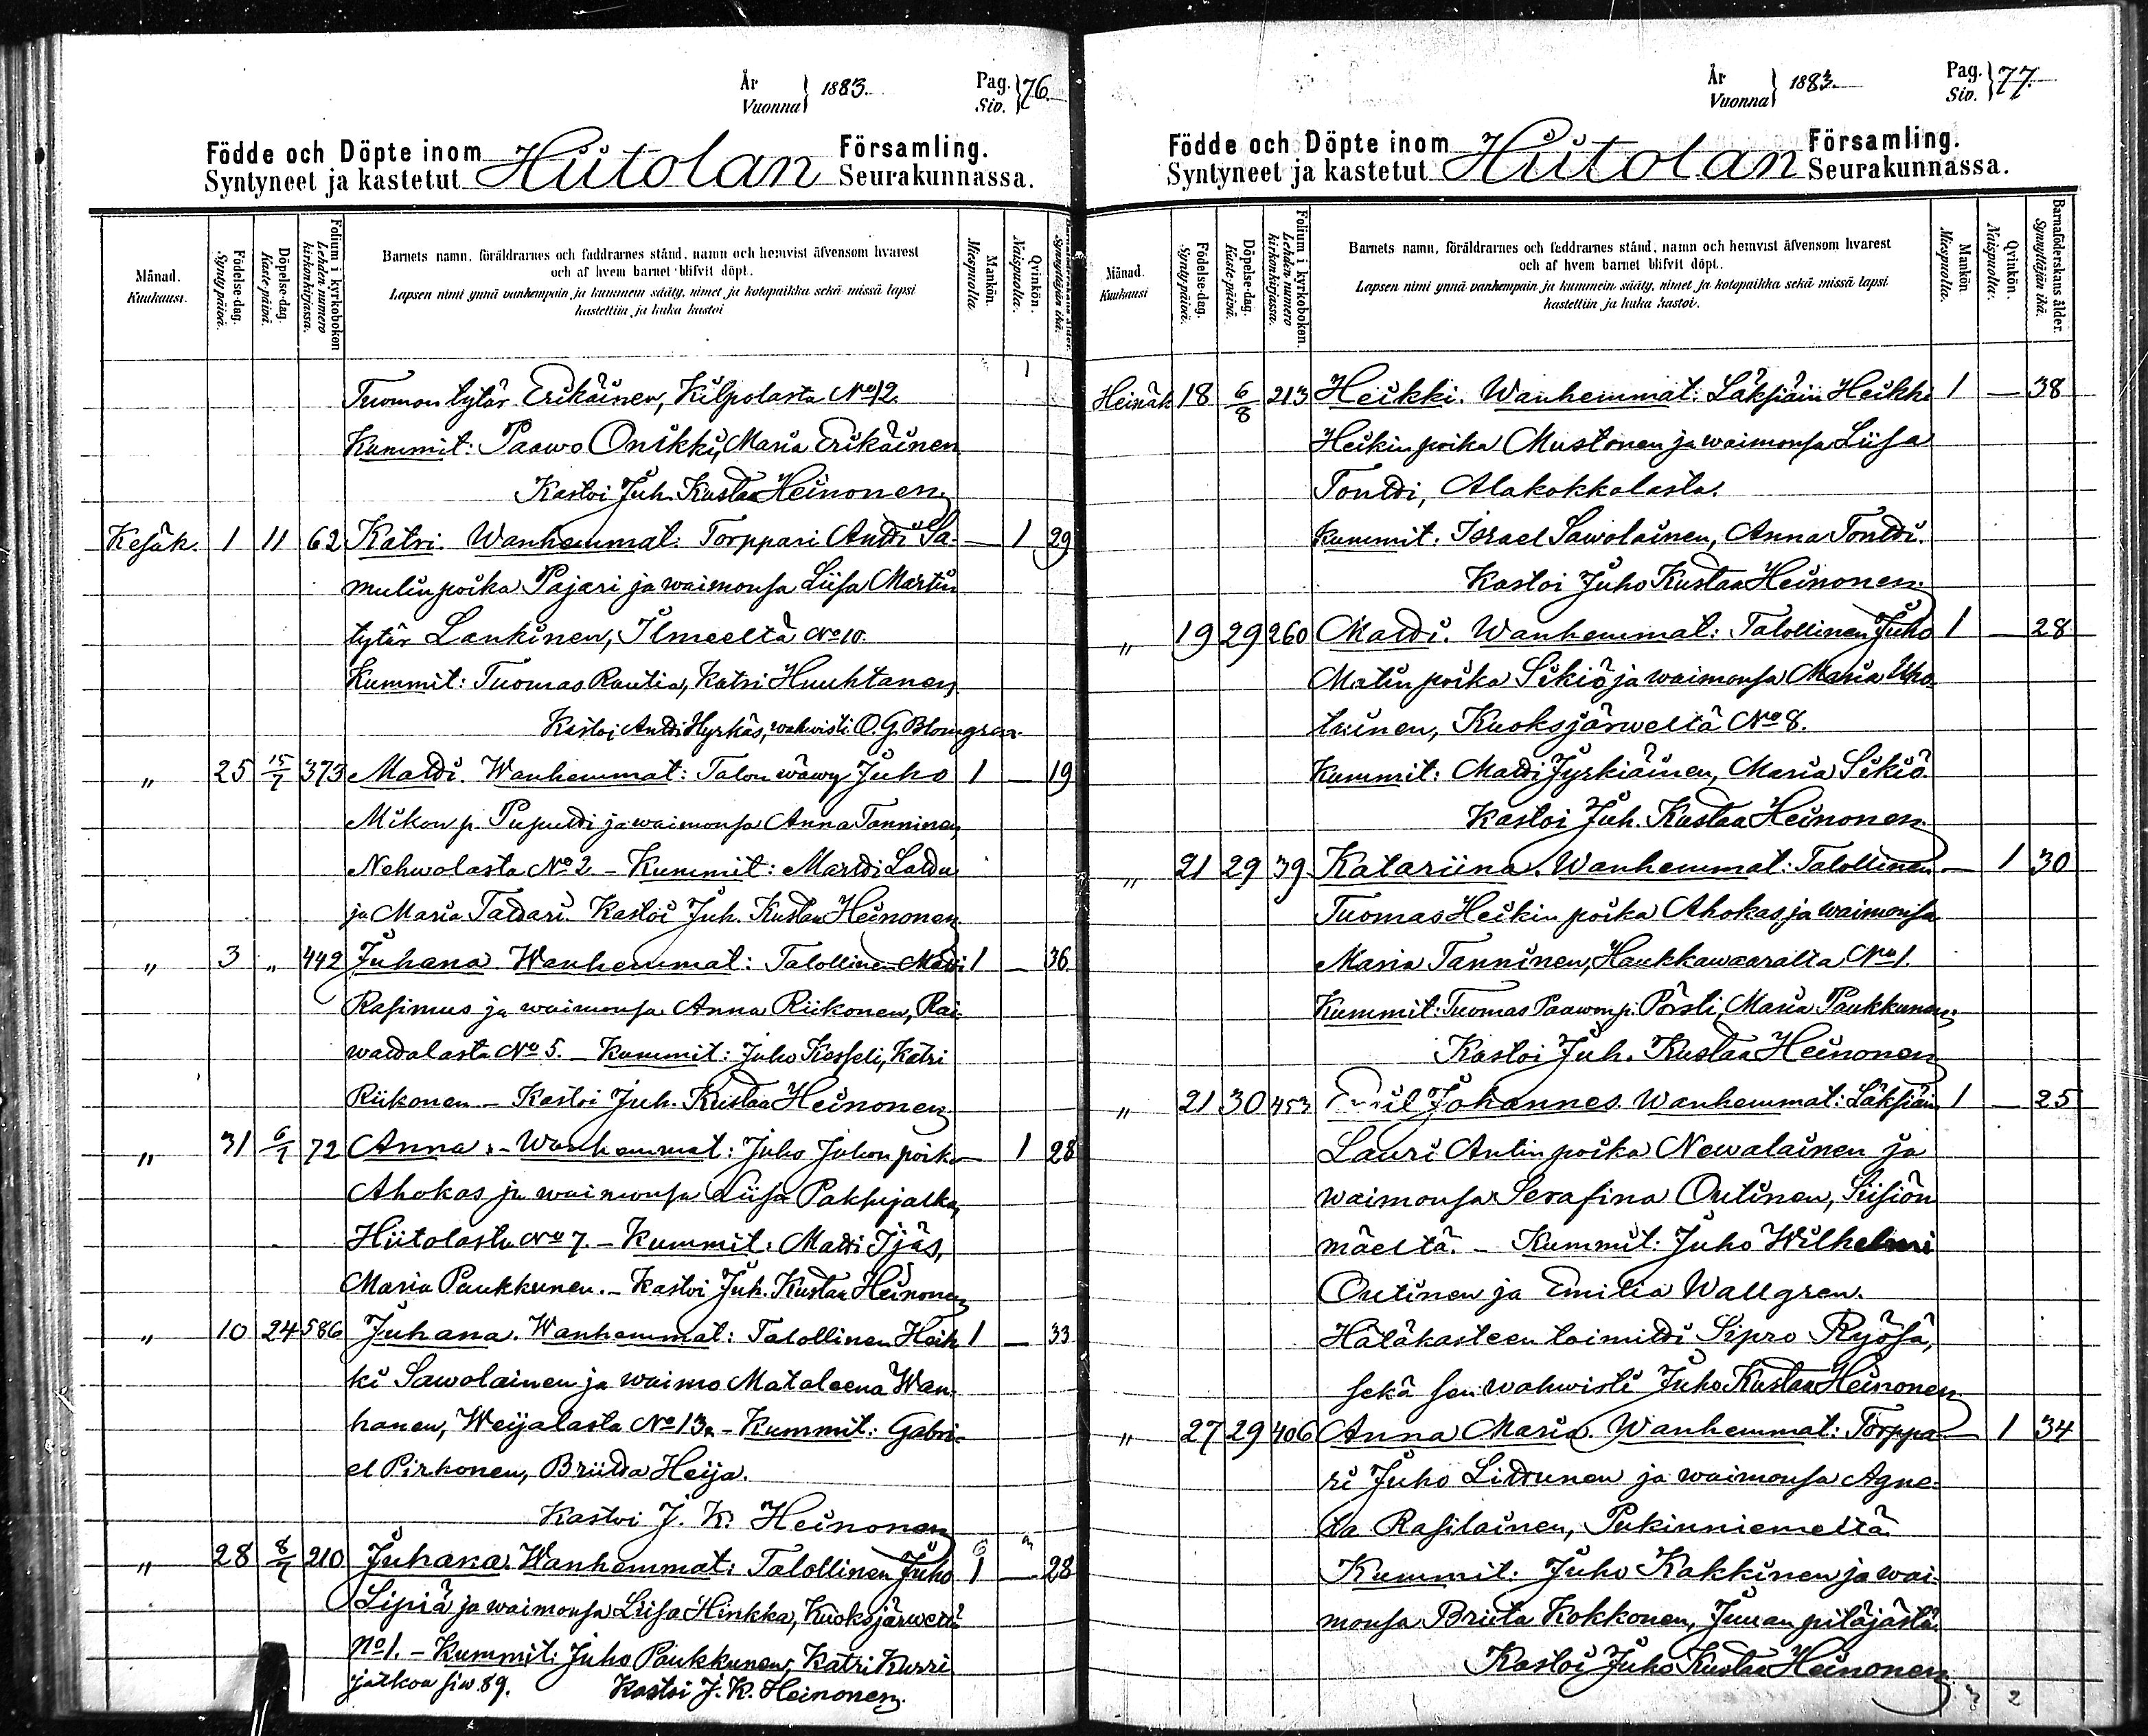 År
Vuonna } 1883.
Pag.
Siv. } 76.
Födde och Döpte inom Hiitolan Församling.
Syntyneet ja kastetut Seurakunnassa.
Månad.
Kuukausi.
Födelse-dag.
Syntypäivä.
Döpelse-dag.
Kaste-päivä.
Folium i kyrkoboken
Lehden numero
kirkonkirjassa.
Barnets namn, föräldrarnes och faddrarnes stånd, namn och hemvist äfvensom hvarest
och af hvem barnet blifvit döpt.
Lapsen nimi ynnä vanhempain ja kummein sääty, nimet ja kotopaikka sekä missä lapsi
kastettiin ja kuka kastoi
Mankön.
Miespuolta.
Qvinkön.
Naispuolta.
Barnaföderskans ålder.
Synnyttäjän ikä.
Tuomon tytär Erikäinen, Kilpolasta No 12. 1
Kummit: Paawo Onikki, Maria Erikäinen
Kastoi Juh. Kustaa Heinonen.
Kesäk. 1 11 62 Katri. Wanhemmat: Torppari Antti Sa- — 1 29
mulin poika Pajari ja waimonsa Liisa Martin
tytär Lankinen, Ilmeeltä No 10.
Kummit: Tuomas Rautia, Katri Huuhtanen
Kastoi Antti Hyrkäs, wahwisti O. G. Blomgren
" 25 15/7 373 Matti. Wanhemmat: Talon wäwy Juho 1 — 19
Mikon p. Puputti ja waimonsa Anna Tanninen,
Nehwolasta No 2 - Kummit: Martti Lattu
ja Maria Tattari. Kastoi Juh. Kustaa Heinonen
" 3 " 442 Juhana. Wanhemmat: Talollinen Matti 1 — 36
Rasimus ja waimonsa Anna Riikonen, Rai-
wattalasta No 5. - Kummit: Juho Kesseli, Katri
Riikonen - Kastoi Juh. Kustaa Heinonen
" 31 6/7 72 Anna. - Wanhemmat: Juho Juhon poika — 1 28
Ahokas ja waimonsa Liisa Paksujalka,
Hiitolasta No 7. - Kummit: Matti Ijäs,
Maria Paukkunen. - Kastoi Juh. Kustaa Heinonen
" 10 24 586 Juhana. Wanhemmat: Talollinen Heik 1 — 33
ki Sawolainen ja waimo Mataleena Wan-
hanen, Weijalasta No 13. - Kummit: Gabri-
el Pirhonen, Briitta Heija.
Kastoi J. K. Heinonen
" 28 8/7 210 Juhana. Wanhemmat: Talollinen Juho 1 — 28
Lipiä ja waimonsa Liisa Hinkka, Kuoksjärweltä
No 1. - Kummit: Juho Paukkunen, Katri Kurri
jatkoa siw 89. Kastoi J. K. Heinonen.
År
Vuonna } 1883.
Pag.
Siv. } 77.
Födde och Döpte inom Hiitolan Församling.
Syntyneet ja kastetut Seurakunnassa.
Månad.
Kuukausi
Födelse-dag.
Syntypäivä.
Döpelse-dag.
Kaste-päivä.
Folium i kyrkoboken.
Lehden numero
kirkonkirjassa.
Barnets namn, föräldrarnes och faddrarnes stånd, namn och hemvist äfvensom hvarest
och af hvem barnet blifvit döpt.
Lapsen nimi ynnä vanhempain ja kummein sääty, nimet ja kotopaikka sekä missä lapsi
kastettiin ja kuka kastoi.
Mankön
Miespuolta.
Qvinkön.
Naispuolta.
Barnaföderskans ålder.
Synnyttäjän ikä.
Heinäk 18 6/8 213 Heikki. Wanhemmat: Läksiäin Heikki 1 — 38
Heikin poika Mustonen ja waimonsa Liisa
Tontti, Alakokkolasta.
Kummit. Israel Sawolainen, Anna Tontti.
Kastoi Juho Kustaa Heinonen.
" 19 29 260 Matti. Wanhemmat: Talollinen Juho 1 — 28
Matin poika Sikiö ja waimonsa Maria Uko-
lainen, Kuoksjärweltä No 8.
Kummit: Matti Jyrkiäinen, Maria Sikiö.
Kastoi Juh. Kustaa Heinonen.
" 21 29 39 Katariina. Wanhemmat: Talollinen — 1 30
Tuomas Heikin poika Ahokas ja waimonsa
Maria Tanninen, Haukkawaaralta No 1.
Kummit: Tuomas Paawon p. Pörsti, Maria Paukkunen.
Kastoi Juh. Kustaa Heinonen
" 21 30 453 Emil Johannes. Wanhemmat: Läksiäin 1 — 25
Lauri Antin poika Newalainen ja
waimonsa Serafina Outinen, Siisiön
mäeltä. - Kummit: Juho Wilhelmi
Outinen ja Emilia Wallgren.
Hätäkasteen toimitti Sipro Ryösä,
sekä sen wahwisti Juho Kustaa Heinonen
" 27 29 406 Anna Maria. Wanhemmat: Torppa- — 1 34
ri Juho Littunen ja waimonsa Agne-
ta Rasilainen, Pukinniemeltä.
Kummit: Juho Kakkinen ja wai-
monsa Briita Kokkonen, Juuan pitäjästä.
Kastoi Juho Kustaa Heinonen
3 2